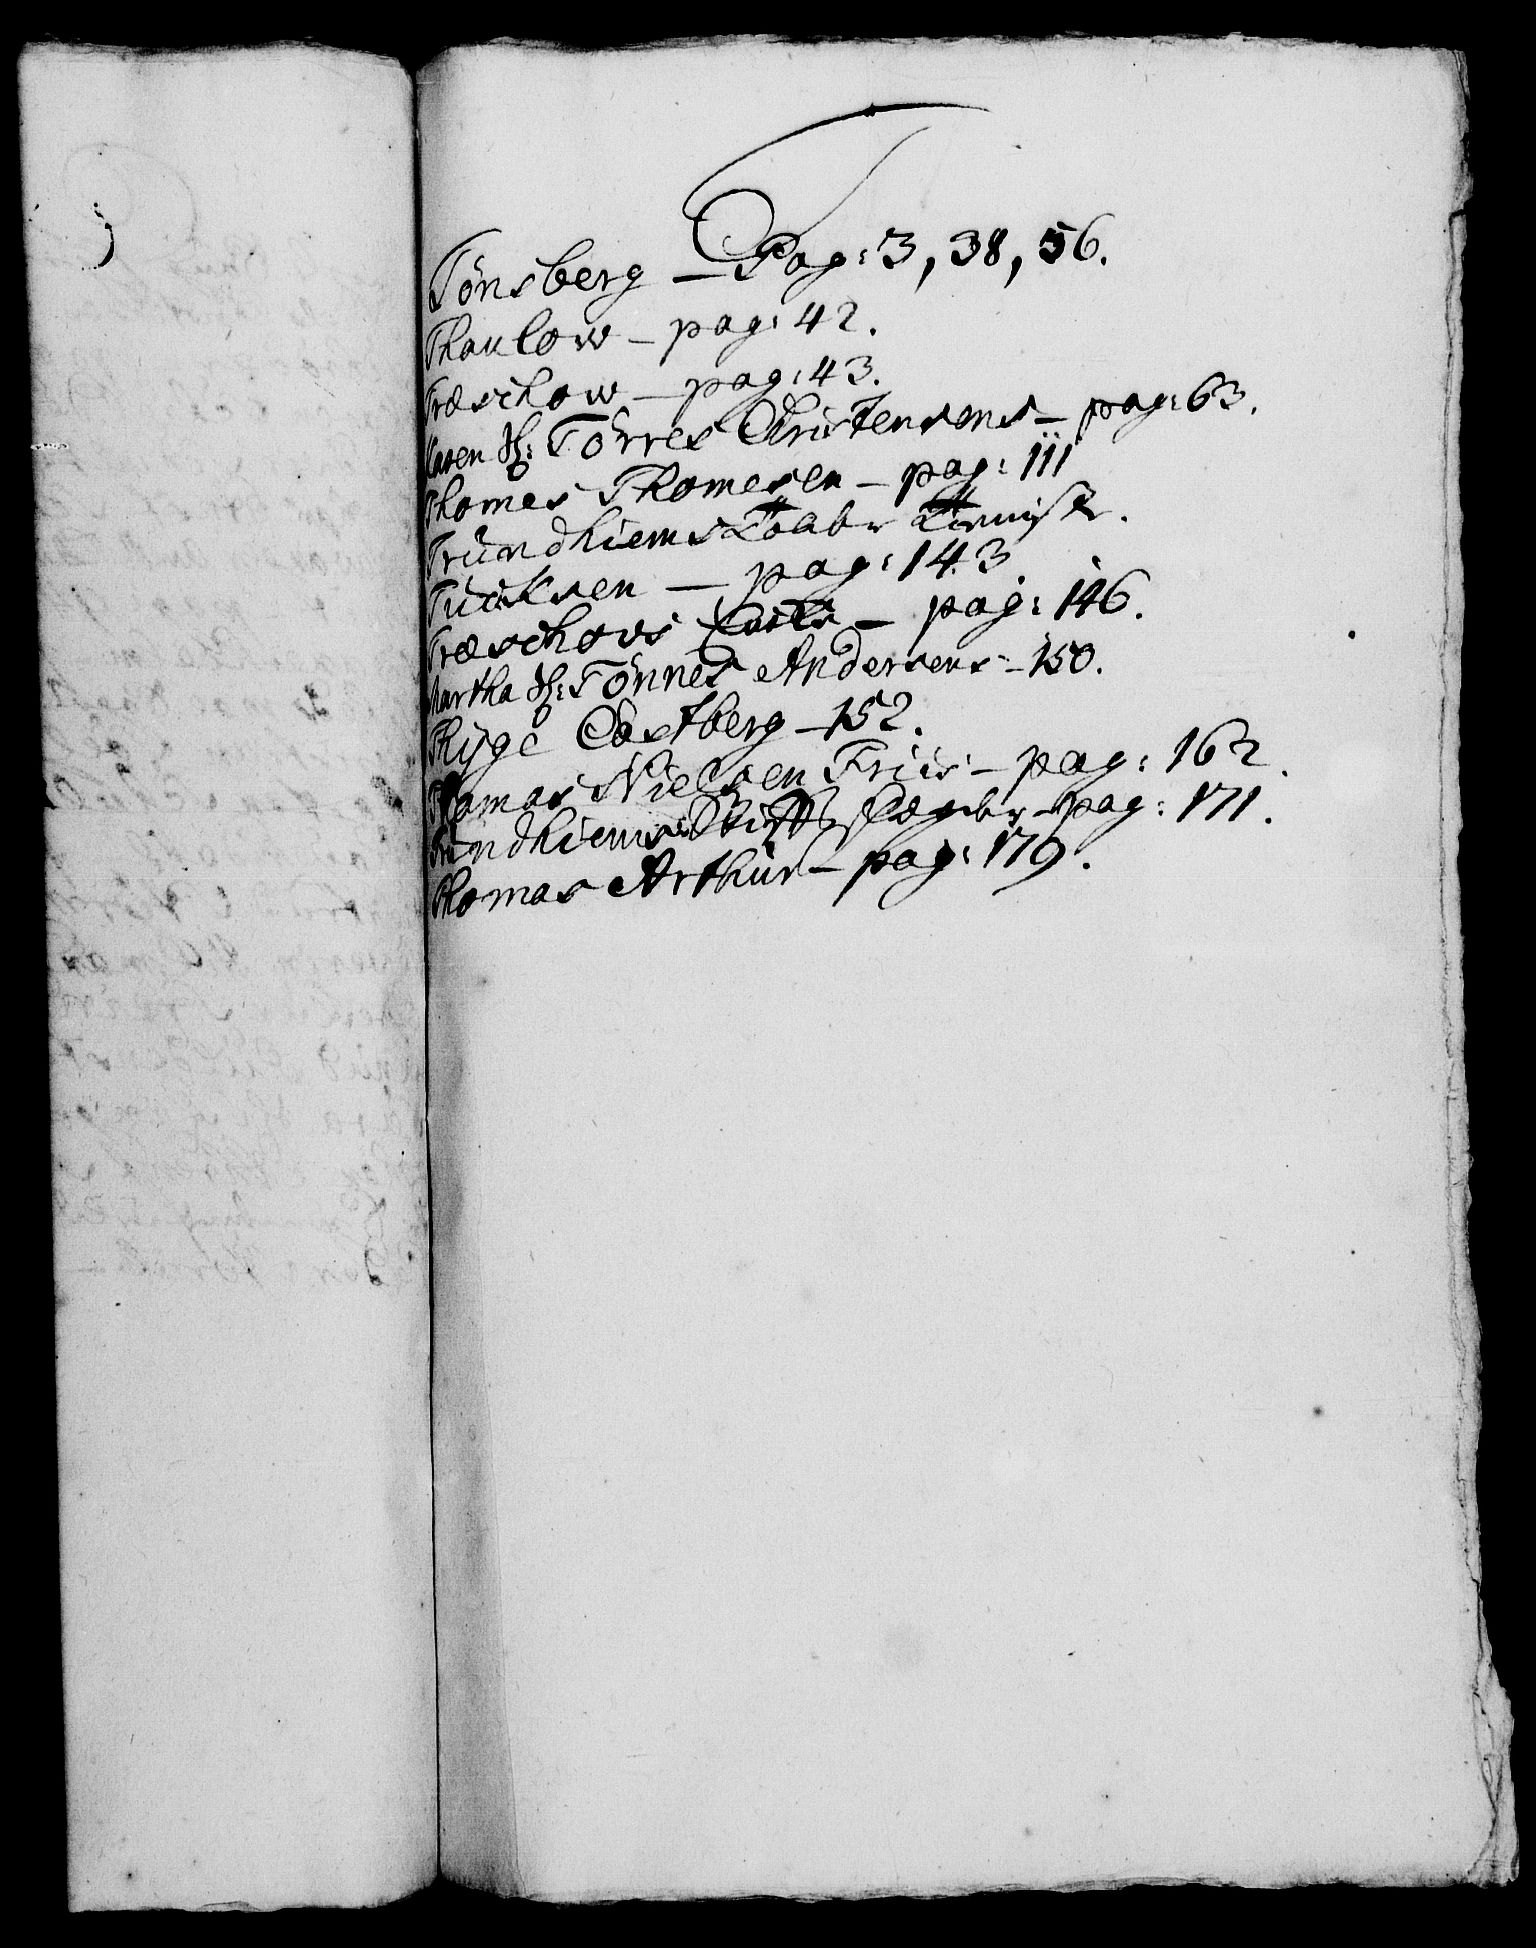 T
Tönsberg – Pag: 3, 38, 56.
Thaulow – pag: 42.
Træschow – pag: 43.
Karen Sl: Törres Christensens – pag: 63.
Thomes Thomesen – pag: 111
Trundhiems Kobber
Tücksen – pag: 143
Træschovs – pag: 146.
Martha Sl: Tönnes Andersens – 150.
Thÿge Castberg – 152.
Thomas Nielsen Friis – pag: 162.
Trundhiems Stiffts – pag: 171.
Thomas Arthur – pag: 179.